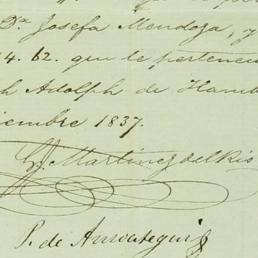 Da Josefa Mendoza, y
4. 62. que le pertenec
h Adolph de Hamb
iembre 1837.
G. Martinez del Rio
P. de Ansoategui